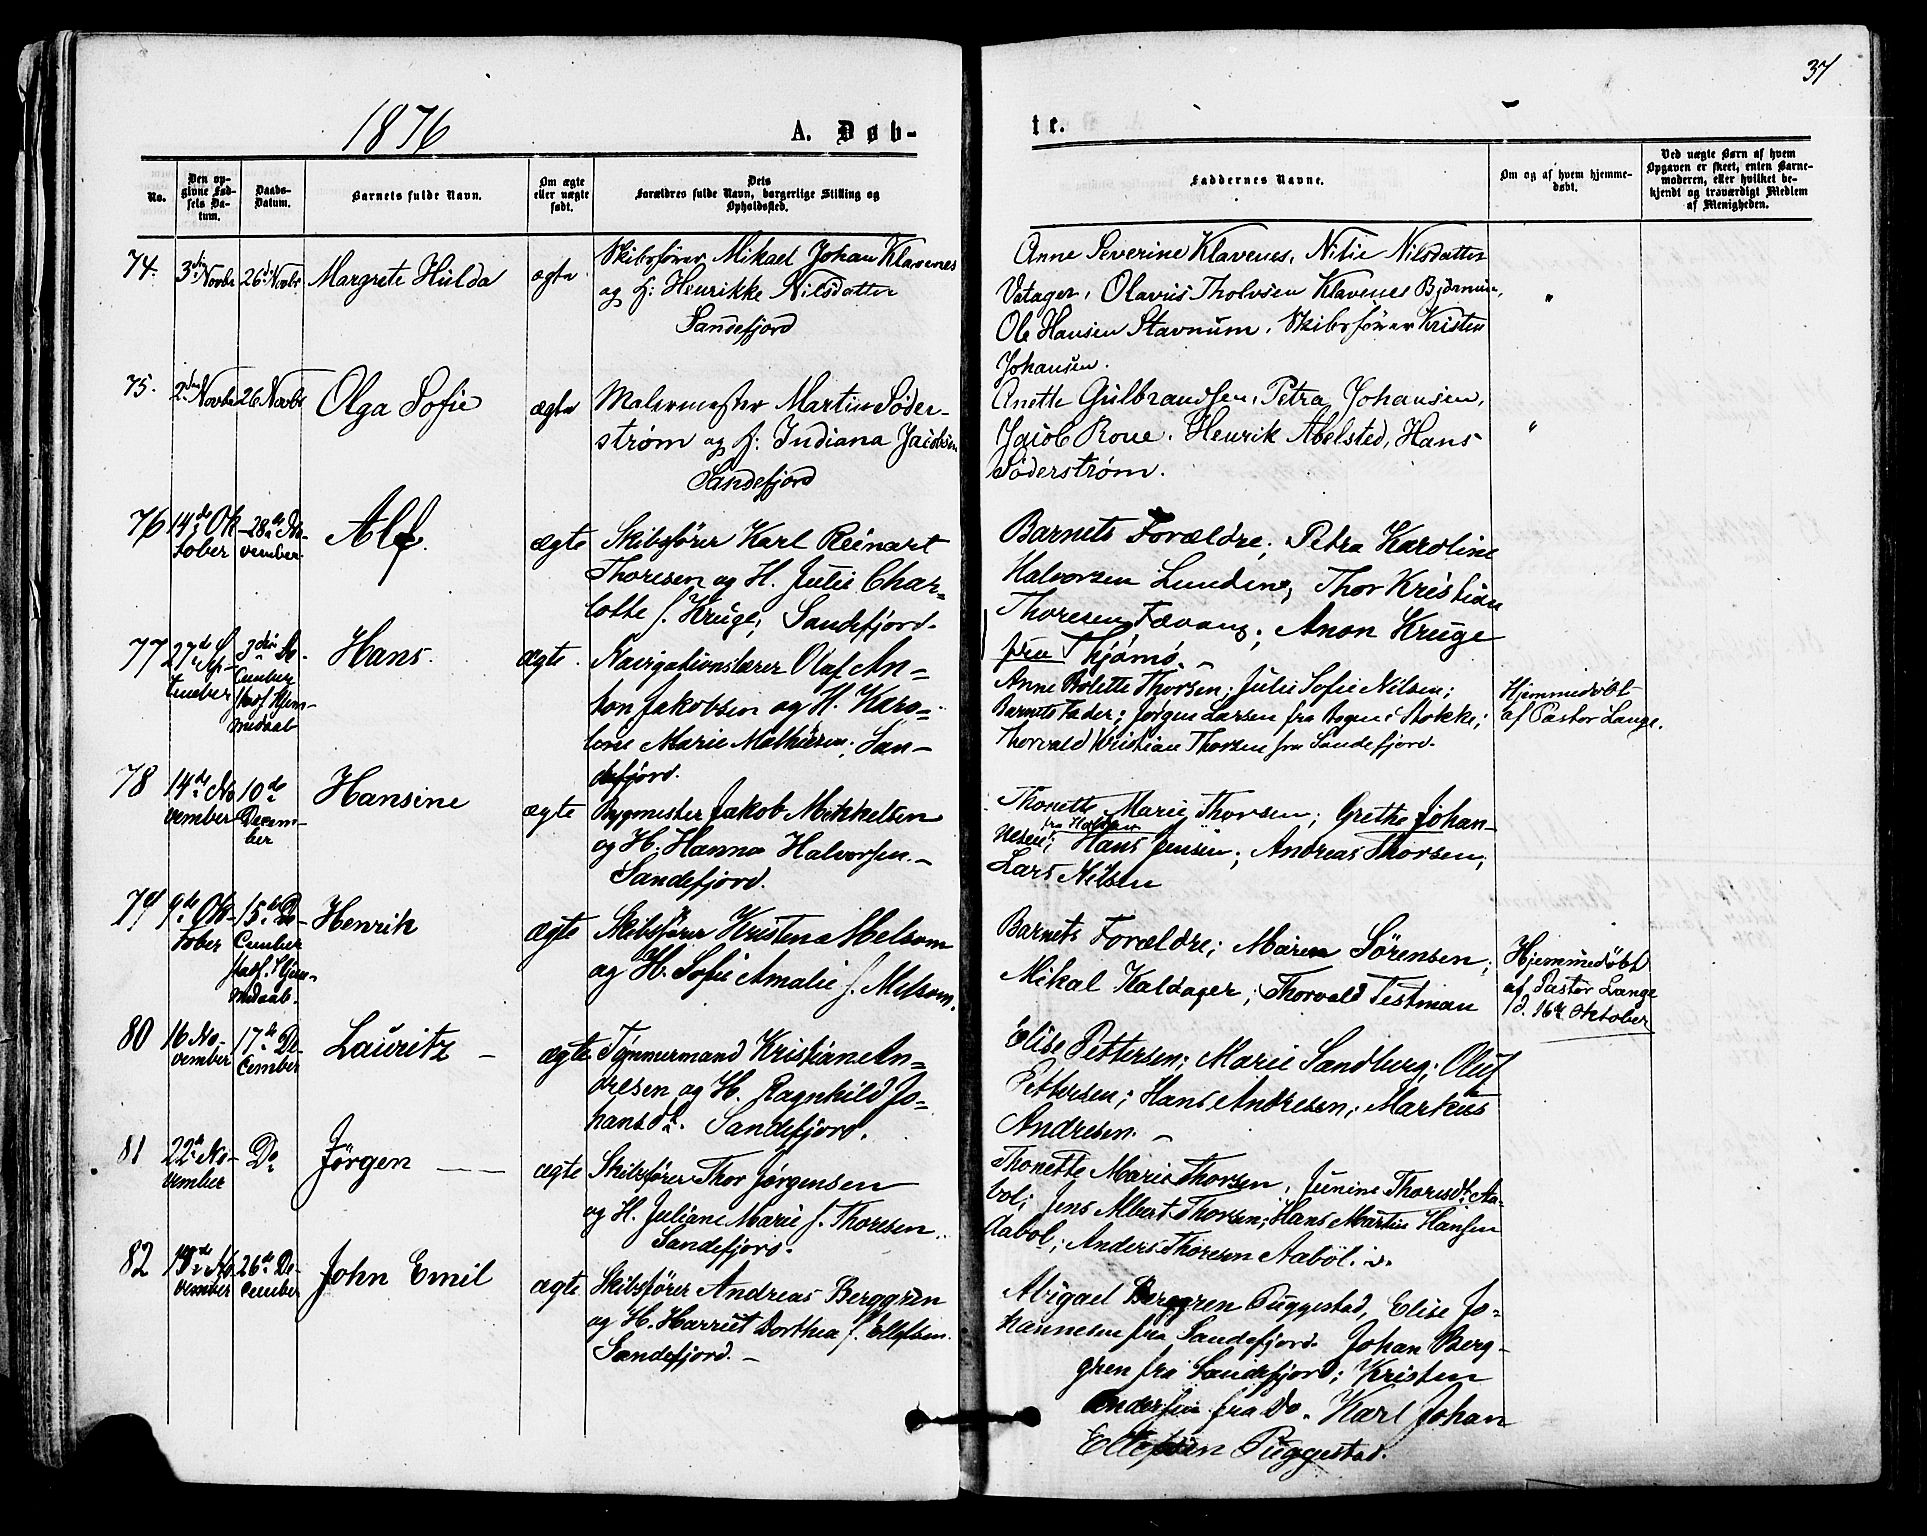 37
1876
A. Døb-
te.
No.
Den op-
givne Fød-
sels Da-
tum.
Daabs-
Datum.
Barnets fulde Navn.
Om ægte
eller uægte
født.
Dets
Forældres fulde Navn, borgerlige Stilling og
Opholdssted.
Faddernes Navne.
Om og af hvem hjemme-
døbt.
Ved uægte Børn af hvem
Opgaven er skeet, enten Barne-
moderen, eller hvilket be-
kjendt og troværdigt Medlem
af Menigheden.
74.
3die Novbr
26de Novbr
Margrete Hulda
ægte
Skibsfører Mikael Johan Klavenes
og H: Henrikke Nilsdatter
Sandefjord
Anne Severine Klavenes, Nilie Nilsdatter
Vatager, Olavus Tholvsen Klavenes
Ole Hansen Stavnum. Skibsfører Kristen
Johansen.
"
75.
2den Novbr
26 Novbr
Olga Sofie
ægte
Malermester Martin Søder-
strøm og H: Indiana Jacobsen
Sandefjord
Anette Gulbrandsen, Petra Johansen,
Jacob Roue. Henrik Abelsted, Hans
Söderstrøm.
"
76
14de Ok
tober
28de No-
vember
Alf.
ægte
Skibsfører Karl Reinart
Thoresen og H. Julie Char-
lotte f. Kruge, Sandefjord.
Barnets Forældre; Petra Karoline
Halvorsen Lunden, Thor Kristian
Thoresen Fævang; Anon Kruge
fra Thjømø.
77
27de Sep-
tember
3die De-
cember
Stadf. Hjem-
medaab
Hans.
ægte.
Navigationslærer Olaf An-
ton Jakobsen og H. Karo-
line Marie Mathisen. San-
defjord.
Anne Bolette Thorsen; Julie Sofie Nilsen;
Barnets Fader; Jørgen Larsen fra Bogen i Stokke;
Thorvald Kristian Thorsen fra Sandefjord.
Hjemmedöbt
af Pastor Lange.
78
14de No
vember
10de
Decem-
ber
Hansine
ægte
Bygmester Jakob Mikkelsen
og H. Hanna Halvorsen.
Sandefjord.
Thonette Marie Thorsen; Grethe Johan-
nesen; fra Halden Hans Jensen; Andreas Thorsen;
Lars Nilsen
79
9de Ok-
tober
15de De-
cember
Stadf. Hjem-
medaab.
Henrik
ægte
Skibsfører Kristen Melsom
og H. Sofie Amalie f. Melsom.
Barnets Forældre; Maren Sörensen;
Mikal Kaldager; Thorvald Testman
Hjemmedöbt
af Pastor Lange
d. 16de Oktober
80
16 No-
vember
17de De-
cember
Lauritz –
ægte
Tømmermand Kristian An-
dresen og H. Ragnhild Jo-
hansdt. Sandefjord.
Elise Pettersen; Marie Sandberg; Oluf
Pettersen; Hans Andresen; Markus
Andresen.
81
22de No-
vember
Do
Jörgen
ægte
Skibsfører Thor Jørgensen
og H. Juliane Marie f. Thoresen.
Sandefjord.
Thonette Marie Thorsen, Junine Thoresdt. Aa-
bol; Jens Albert Thorsen; Hans Martin Hansen
Aabol; Anders Thoresen Aaböl.
82
No
vember
26de De-
cember
John Emil
ægte
Skibsfører Andreas Berggren
og H. Harriet Dorthea f. Ellefsen.
Sandefjord.
Abigael Berggren Puggestad, Elise Jo-
hannesen fra Sandefjord. Johan Berg-
gren fra Sandefjord; Kristen
Andersen fra Do. Karl Johan
Ellefsen Puggestad.